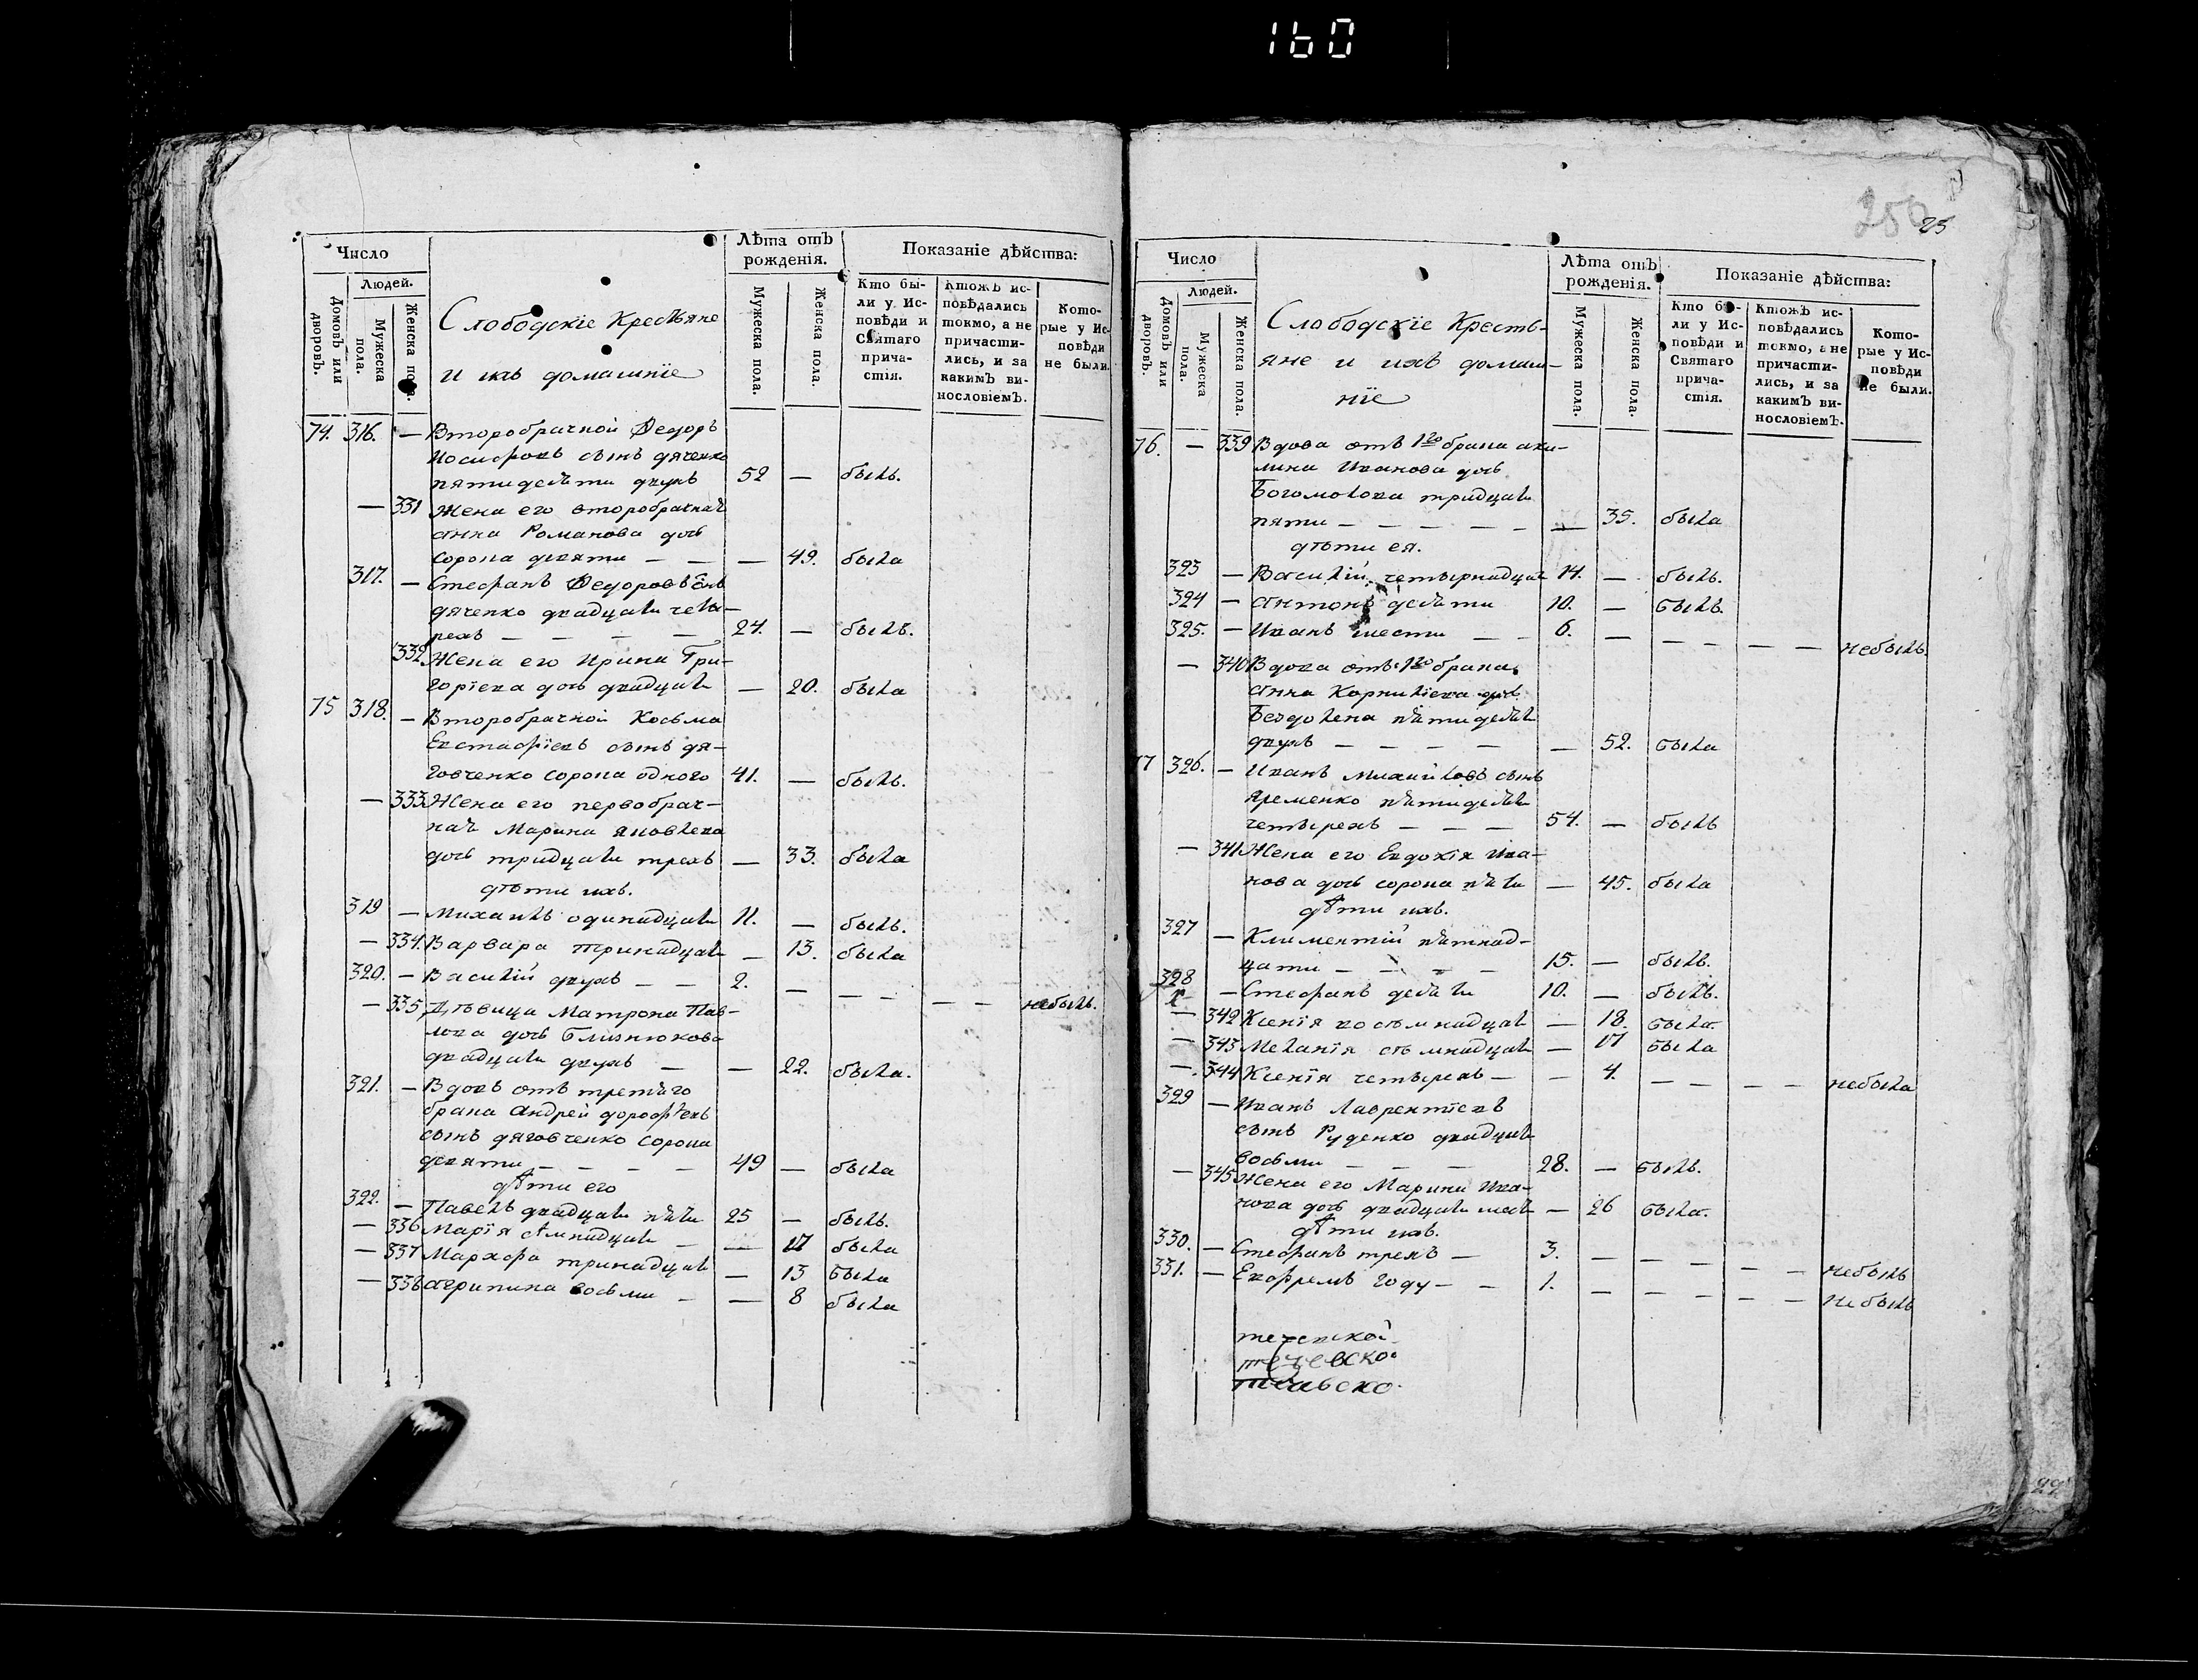 160
Число
Людей.
Домовъ или дворовъ.
Мужеска пола.
Женска пола.
Слободскіе Крестьяне
и ихъ домашніе
Лѣта отъ
рожденія.
Мужеска пола.
Женска пола.
Показаніе дѣйства:
Кто бы-
ли у Ис-
повѣди и
Святаго
прича-
стія.
Ктожъ ис-
повѣдались
токмо, а не
причасти-
лись, и за
какимъ ви-
нословіемъ.
Кото-
рые у Ис-
повѣди
не были.
74. 316. — Второбрачной Федоръ
Иосифовъ сынъ дяченко
пятидесяти двухъ 52 — былъ.
— 331 Жена его второбрачная
анна Романова дочь
сорока девяти — — — 49. была
317. — Стефанъ Федоровъ сынъ
дяченко двадцати четы-
рехъ — — — — 24. — былъ.
332 Жена его Ирина Гри-
горіева дочь двадцати — 20. была
75 318. — Второбрачной Косьма
Евстафіевъ сынъ дя-
говченко сорока одного 41. — былъ.
— 333 Жена его первобрач-
ная Марина яковлева
дочь тридцати трехъ — 33. была
дѣти ихъ.
319 — Михаилъ одинадцати 11. — былъ.
— 334. Варвара тринадцати — 13. была
320. — Василій двухъ — — 2. — — — — — небылъ.
— 335 Дѣвица Матрона Пав-
лова дочь Близнюкова
двадцати двухъ — — 22. была.
321. — Вдовъ отъ третяго
брака андрей дорофѣевъ
сынъ дяговченко сорока
девяти — — — — 49 — была
дѣти его
322. — Павелъ двадцати пяти 25 — былъ.
— 336 Марія семнадцати — — 17 была
— 337 Марѳа тринадцати — 13 была
— 338 агрипина восьми — — 8 была
250
25
Число
Людей.
Домовъ или дворовъ.
Мужеска пола.
Женска пола.
Слободскіе Кресть-
яне и ихъ домаш-
ніе
Лѣта отъ
рожденія.
Мужеска пола.
Женска пола.
Показаніе дѣйства:
Кто бы-
ли у Ис-
повѣди и
Святаго
прича-
стія.
Ктожъ ис-
повѣдались
токмо, а не
причасти-
лись, и за
какимъ ви-
нословіемъ.
Кото-
рые у Ис-
повѣди
не были.
76. — 339 Вдова отъ 1го брака аки-
лина Иванова дочь
Богомолова тридцати
пяти — — — — — — 35. была
дѣти ея.
323 — Василій четырнадцати 14. — былъ.
324 — антонъ десяти 10. — былъ.
325. — Иванъ шести — — 6. — — — — — небылъ.
— 340 Вдова отъ 1го брака
анна Корнилієва дочь
пятидесяти
двухъ — — — — — 52. была
77 326. — Иванъ Михайловъ сынъ
яременко пятидесяти
четырехъ — — — 54. — былъ
— 341 Жена его Евдокія ива-
нова дочь сорока пяти — 45. была
дѣти ихъ.
327 — Климентій пятнад-
цати — — — — 15. — былъ.
328 — Стефанъ десяти 10. — былъ.
— 342 Ксенія восѣмнадцати — 18. была.
— 343 Меланія сѣмнадцати — 17 была
— 344 Ксенія четырехъ — — 4. — — — — небыла
329 — Иванъ Лаврентіевъ
сынъ Руденко двадцати
восьми — — — 28. — былъ.
— 345 Жена его Марина Ива-
нова дочь двадцати шести — 26 была.
дѣти ихъ.
330. — Стефанъ трехъ — 3. — — — — — небылъ
331. — Ефремъ году — — 1. — — — — — небылъ